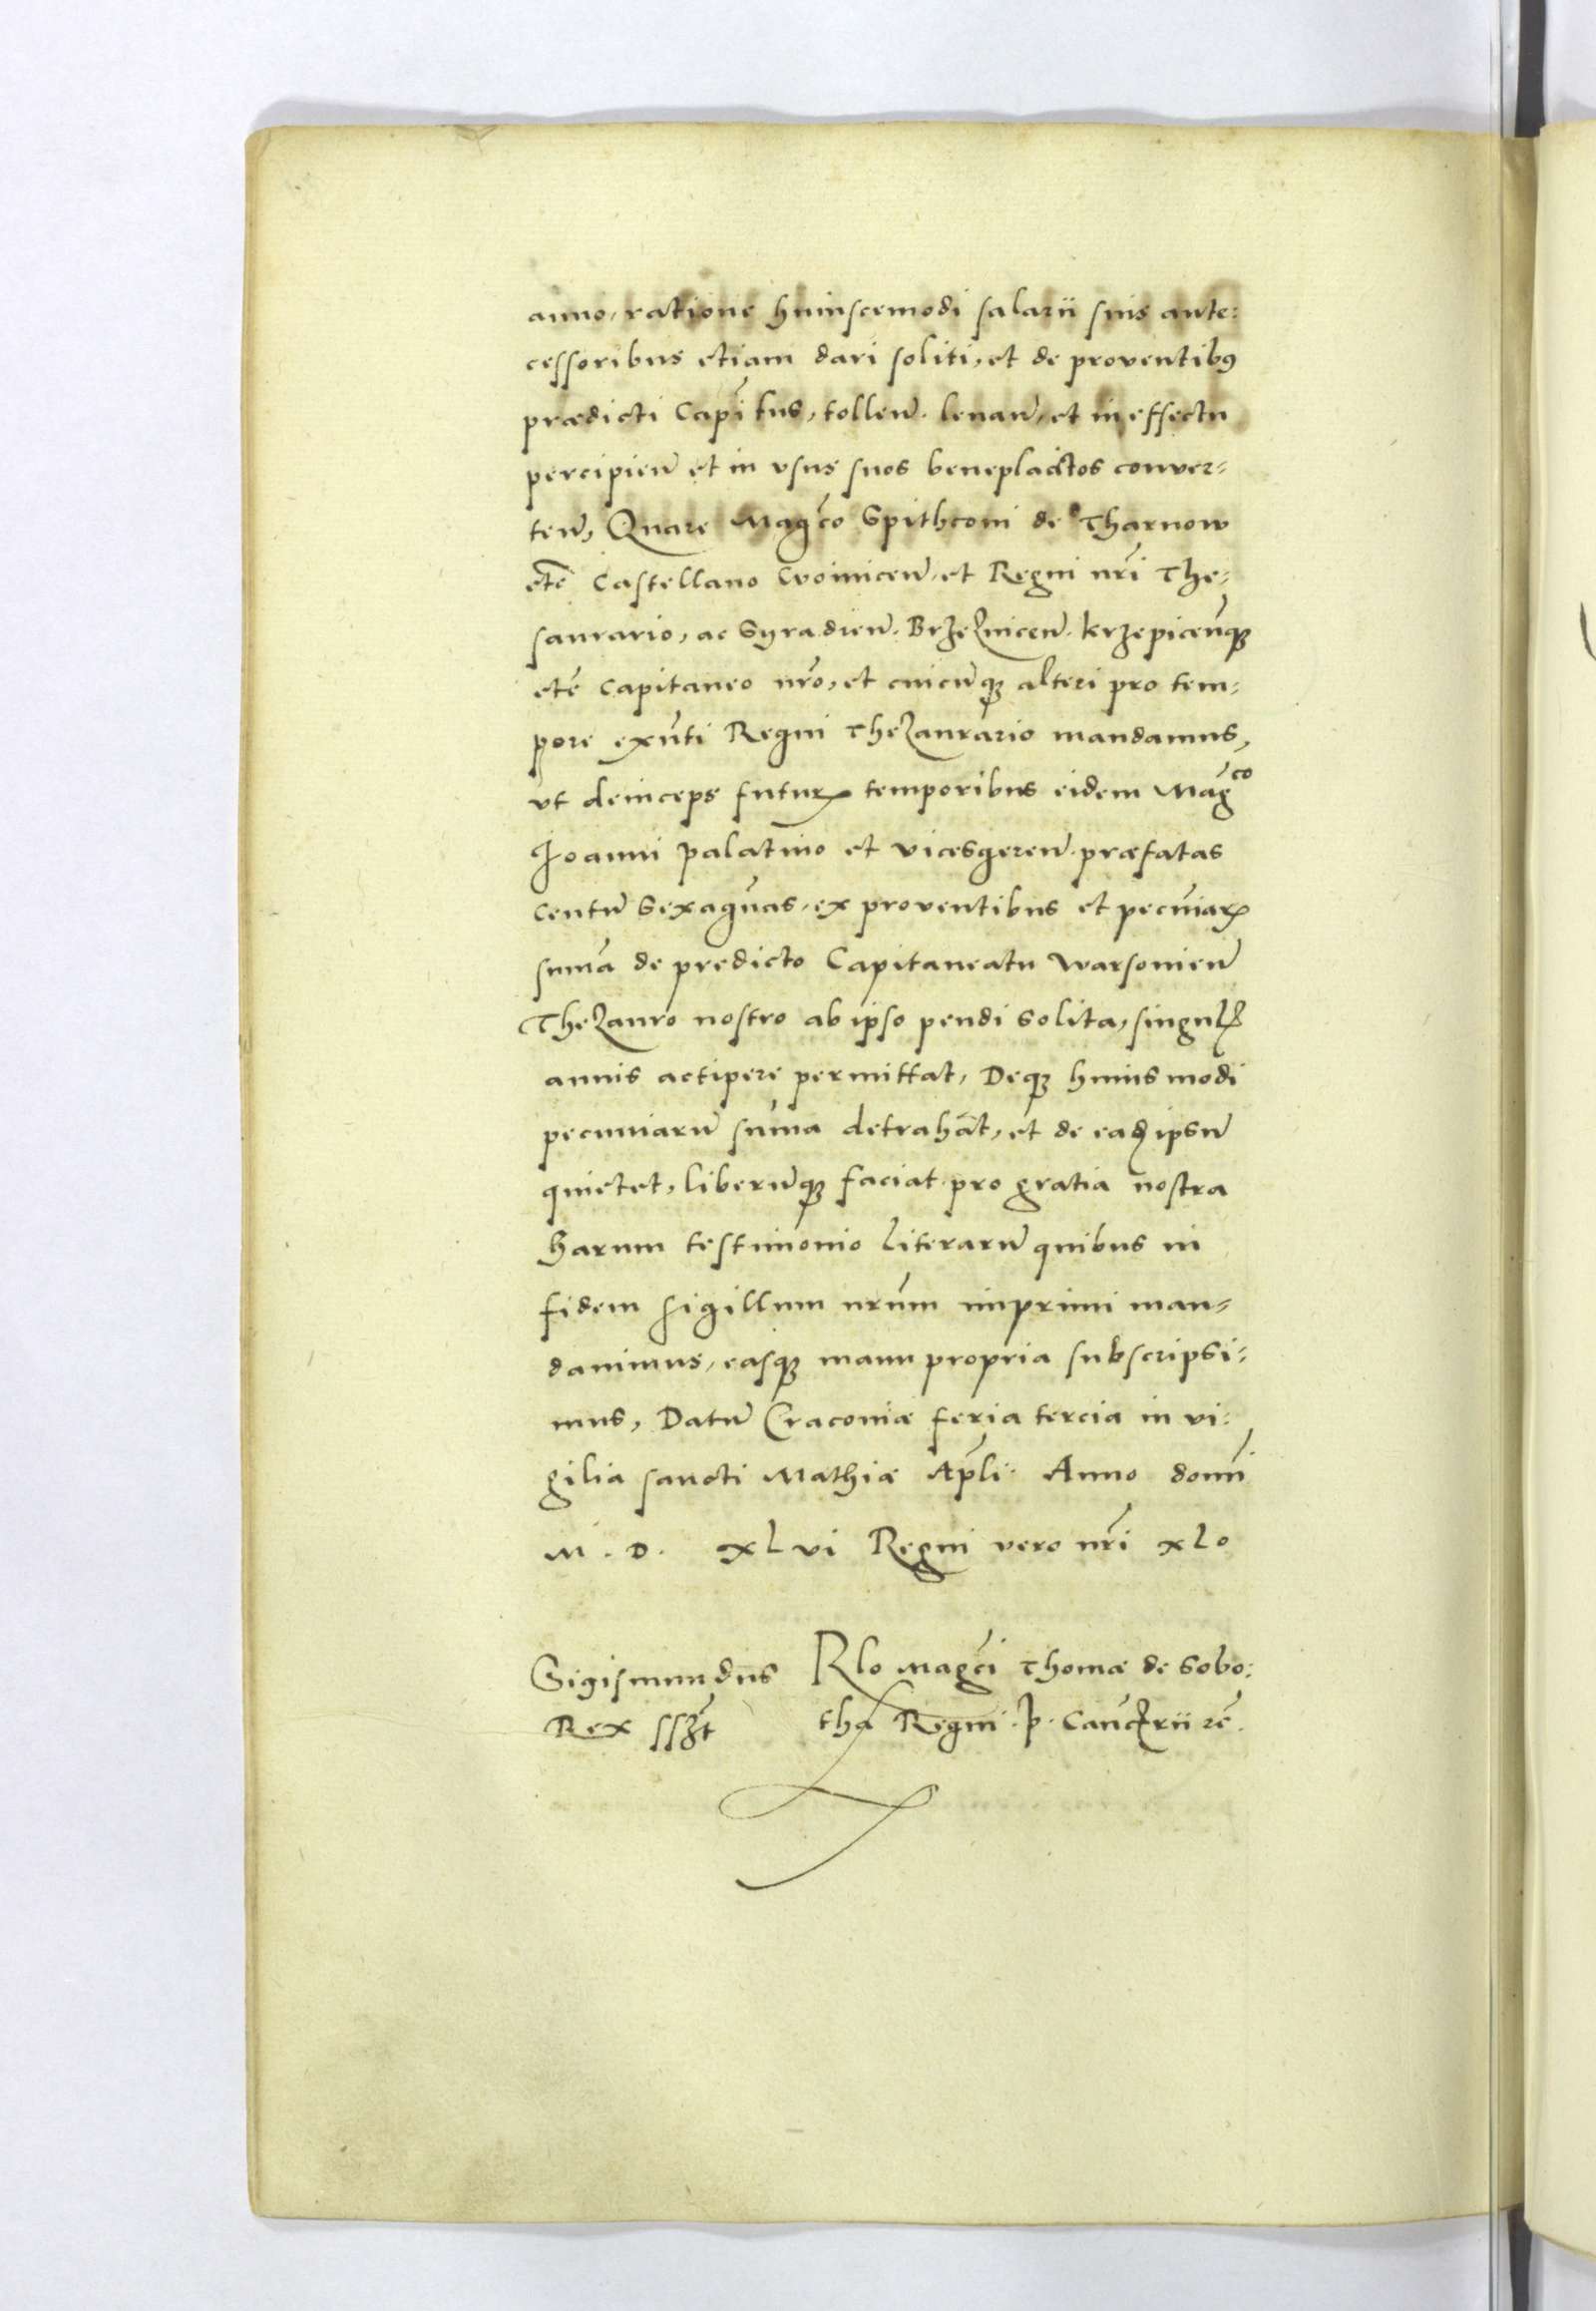 anno, ratione huiuscemodi salarii suis ante:
cessoribus etiam dari soliti, et de proventibꝰ
prædicti Capitūs, tollen̄. levan̄, et in effectu
percipien̄ et in vsus suos beneplacitos conver-
ten̄, Quare Mag̃co Spithconi de Tharnow
etc̃ Castellano Woinicen̄. et Regni nr̃i The-
saurario, ac Syradien̄. Brzeznicen̄. krzepicen̄qȝ
etc̃ Capitaneo nr̃o, et cuicūqȝ alteri pro tem-
pore exñti Regni Thezaurario mandamus,
vt deinceps futurꝭ temporibus eidem Mag̃co
Joanni palatino et vicesgeren̄. præfatas
centū Sexagñas, ex proventibus et pecuniaꝝ
sum̃a de predicto Capitaneatu warsovien̄
Thezauro nostro ab ipso pendi solita, singulꝭ
annis accipere permittat, Deqȝ huiusmodi
pecuniarū sum̃a detrahāt, et de eadē ipsū
quietet, liberūqȝ faciat pro gratia nostra
harum testimonio literarū quibus in
fidem sigillum nr̃um imprimi man-
davimus, easqȝ manu propria subscripsi-
mus, Datū Craconiæ feria tercia in vi-
gilia sancti Mathiæ Apl̃i. Anno domĩ
M. D. xlvi Regni vero nr̃i xlo
Sigismundus Rlo mag̃ci Thomæ de Sobo:
Rex sszt tha Regni .p. Canc̃lrii rẽ.